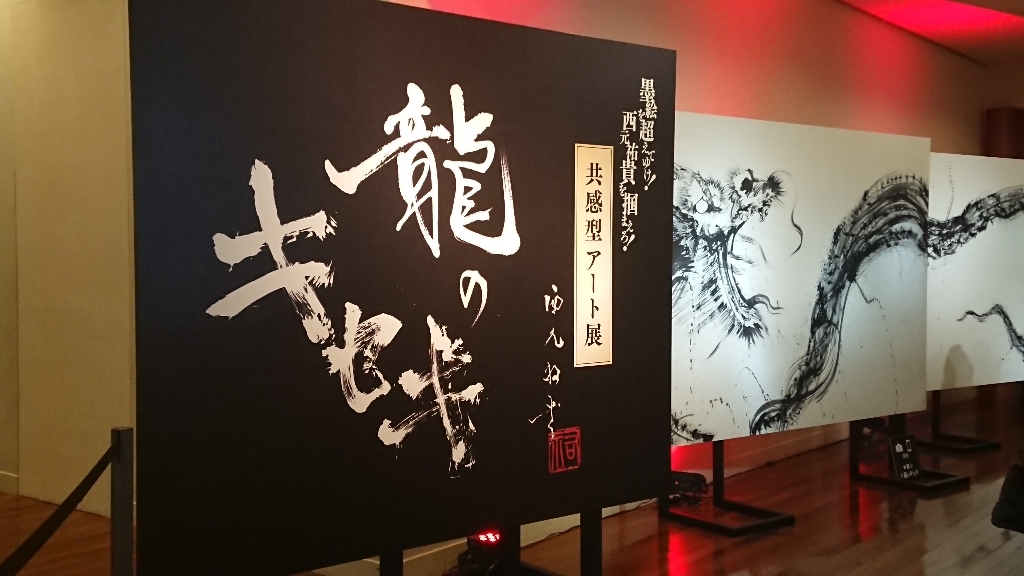 墨絵を超えてゆけ!
西元祐貴を掴まえろ!
共感型 アート展
龍の
キセキ
西元祐貴